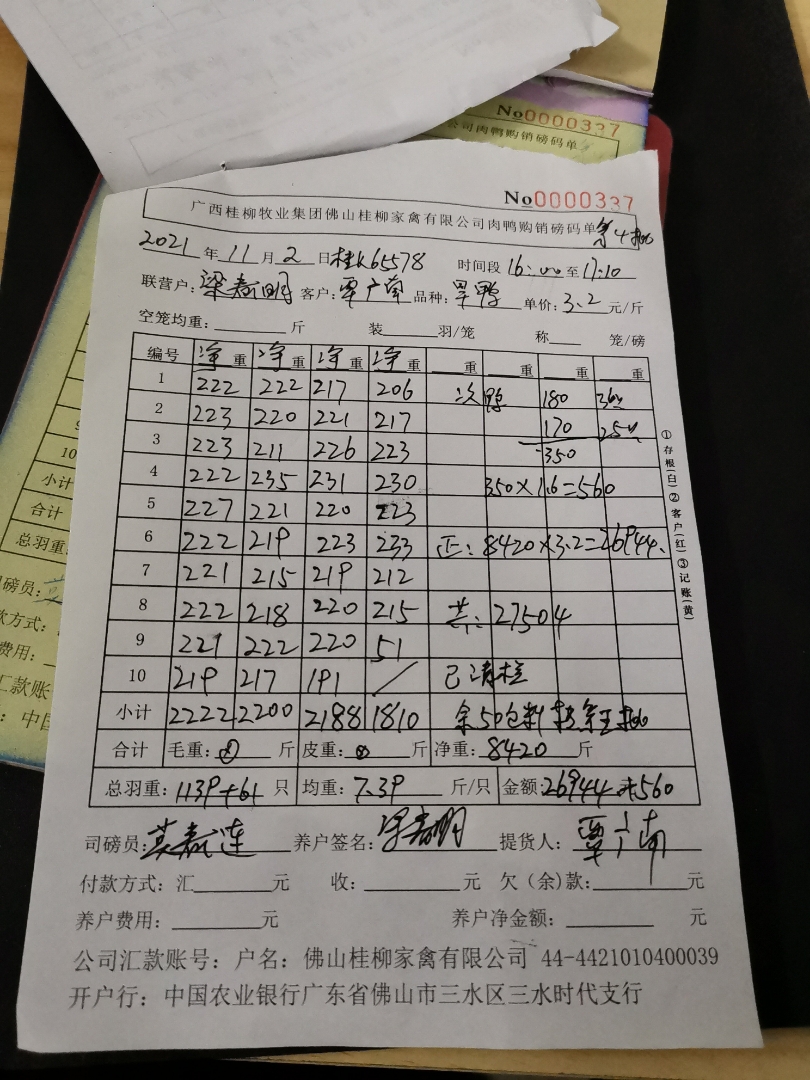 No0000337
公司肉鸭购销磅码单
No0000337
广西桂柳牧业集团佛山桂柳家禽有限公司肉鸭购销磅码单 第4批
2021年11月2日 桂K65578 时间段 16:00至17:10
联营户: 梁嘉明 客户: 覃广南 品种: 旱鸭 单价: 3.2元/斤
空笼均重:______斤 装______羽/笼 称______笼/磅
编号 净重 净重 净重 净重 ___重 ___重 ___重 ___重
1 222 222 217 206 次鸭 180 36只
2 223 220 221 217 170 25只
3 223 211 226 223 350
4 222 235 231 230 350×1.6=560
5 227 221 220 223
6 222 219 223 233 正: 8420×3.2=26944.
7 221 215 219 212
8 222 218 220 215 共: 27504
9 221 222 220 51
10 219 217 191 / 已清栏
小计 2222 2200 2188 1810 余50包料
合计 毛重: 斤 皮重: 斤 净重: 8420斤
总羽重: 1139+61只 均重: 7.39斤/只 金额: 26944+560
司磅员: 养户签名: 梁嘉明 提货人: 覃广南
付款方式: 汇______元 收:______元 欠(余)款:______元
养户费用:______元 养户净金额:______元
公司汇款账号: 户名: 佛山桂柳家禽有限公司 44-4421010400039
开户行: 中国农业银行广东省佛山市三水区三水时代支行
①存根(白)②客户(红)③记账(黄)
10
小计
合计
总羽重:
磅员:
款方式:
费用:
汇款账
: 中国